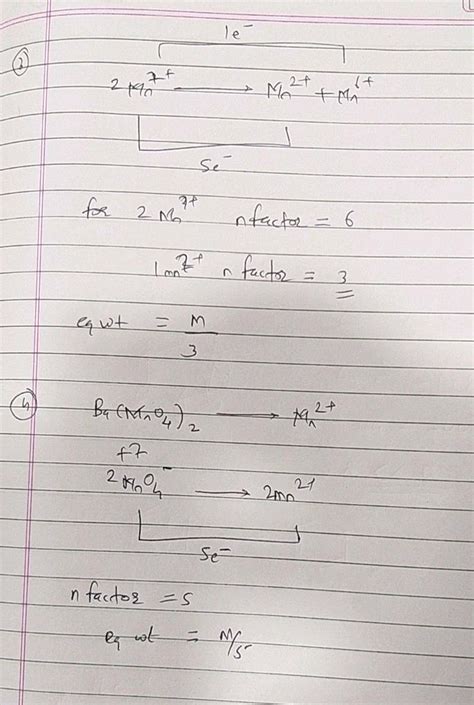 1e⁻
2) 2Mn⁷⁺ ⟶ Mn²⁺ + Mn⁶⁺
5e⁻
for 2Mn⁷⁺ n factor = 6
1mn⁷⁺ n factor = 3
eq wt = M/3
4) Ba(MnO₄)₂ ⟶ Mn²⁺
+7
2MnO₄⁻ ⟶ 2mn²⁺
5e⁻
n factor = 5
eq wt = M/5